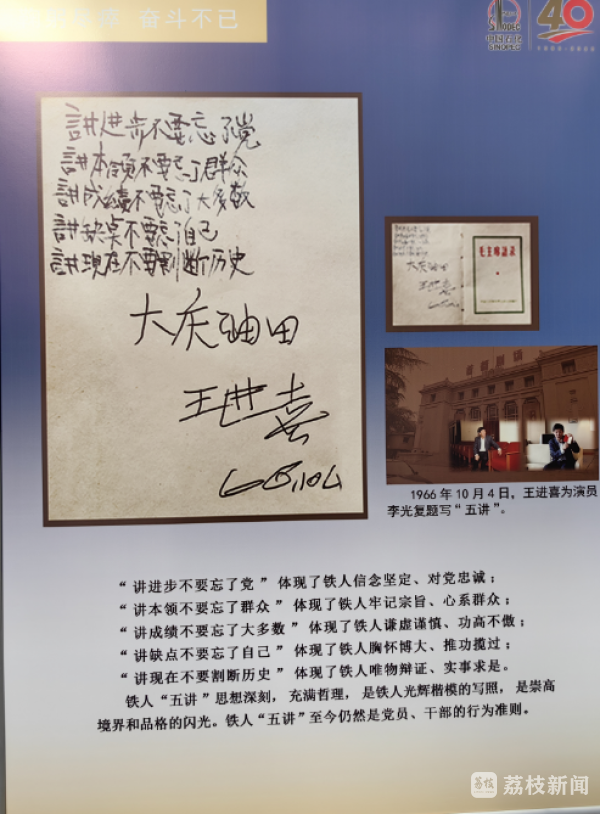 奋斗不已
40
中国石化
SINOPEC
講进步不要忘了党
講本领不要忘了群众
講成績不要忘了大多数
講缺点不要忘了自己
講现在不要割断历史
大庆油田
王进喜
66.10.4
毛主席語录
1966 年 10 月 4 日，王进喜为演员
李光复题写“五讲”。
“讲进步不要忘了党” 体现了铁人信念坚定、对党忠诚；
“讲本领不要忘了群众” 体现了铁人牢记宗旨、心系群众；
“讲成绩不要忘了大多数” 体现了铁人谦虚谨慎、功高不傲；
“讲缺点不要忘了自己” 体现了铁人胸怀博大、推功揽过；
“讲现在不要割断历史” 体现了铁人唯物辩证、实事求是。
铁人“五讲”思想深刻，充满哲理，是铁人光辉楷模的写照，是崇高
境界和品格的闪光。铁人“五讲”至今仍然是党员、干部的行为准则。
荔枝
荔枝新闻